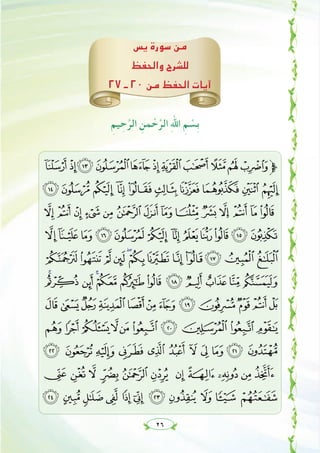 من سورة يس
للشرح والحفظ
آيات الحفظ من ٢٠ - ٢٧
بِسْمِ اللَّهِ الرَّحْمَنِ الرَّحِيمِ
﴿ وَٱضْرِبْ لَهُم مَّثَلًا أَصْحَٰبَ ٱلْقَرْيَةِ إِذْ جَآءَهَا ٱلْمُرْسَلُونَ ﴿١٣﴾ إِذْ أَرْسَلْنَآ
إِلَيْهِمُ ٱثْنَيْنِ فَكَذَّبُوهُمَا فَعَزَّزْنَا بِثَالِثٍ فَقَالُوٓا۟ إِنَّآ إِلَيْكُم مُّرْسَلُونَ ﴿١٤﴾
قَالُوا۟ مَآ أَنتُمْ إِلَّا بَشَرٌ مِّثْلُنَا وَمَآ أَنزَلَ ٱلرَّحْمَٰنُ مِن شَىْءٍ إِنْ أَنتُمْ إِلَّا
تَكْذِبُونَ ﴿١٥﴾ قَالُوا۟ رَبُّنَا يَعْلَمُ إِنَّآ إِلَيْكُمْ لَمُرْسَلُونَ ﴿١٦﴾ وَمَا عَلَيْنَآ إِلَّا
ٱلْبَلَٰغُ ٱلْمُبِينُ ﴿١٧﴾ قَالُوٓا۟ إِنَّا تَطَيَّرْنَا بِكُمْ لَئِن لَّمْ تَنتَهُوا۟ لَنَرْجُمَنَّكُمْ
وَلَيَمَسَّنَّكُم مِّنَّا عَذَابٌ أَلِيمٌ ﴿١٨﴾ قَالُوا۟ طَٰٓئِرُكُم مَّعَكُمْ أَئِن ذُكِّرْتُم
بَلْ أَنتُمْ قَوْمٌ مُّسْرِفُونَ ﴿١٩﴾ وَجَآءَ مِنْ أَقْصَا ٱلْمَدِينَةِ رَجُلٌ يَسْعَىٰ قَالَ
يَٰقَوْمِ ٱتَّبِعُوا۟ ٱلْمُرْسَلِينَ ﴿٢٠﴾ ٱتَّبِعُوا۟ مَن لَّا يَسْـَٔلُكُمْ أَجْرًا وَهُم
مُّهْتَدُونَ ﴿٢١﴾ وَمَا لِىَ لَآ أَعْبُدُ ٱلَّذِى فَطَرَنِى وَإِلَيْهِ تُرْجَعُونَ ﴿٢٢﴾
ءَأَتَّخِذُ مِن دُونِهِۦٓ ءَالِهَةً إِن يُرِدْنِ ٱلرَّحْمَٰنُ بِضُرٍّ لَّا تُغْنِ عَنِّى
شَفَٰعَتُهُمْ شَيْـًٔا وَلَا يُنقِذُونِ ﴿٢٣﴾ إِنِّىٓ إِذًا لَّفِى ضَلَٰلٍ مُّبِينٍ ﴿٢٤﴾
٢٦